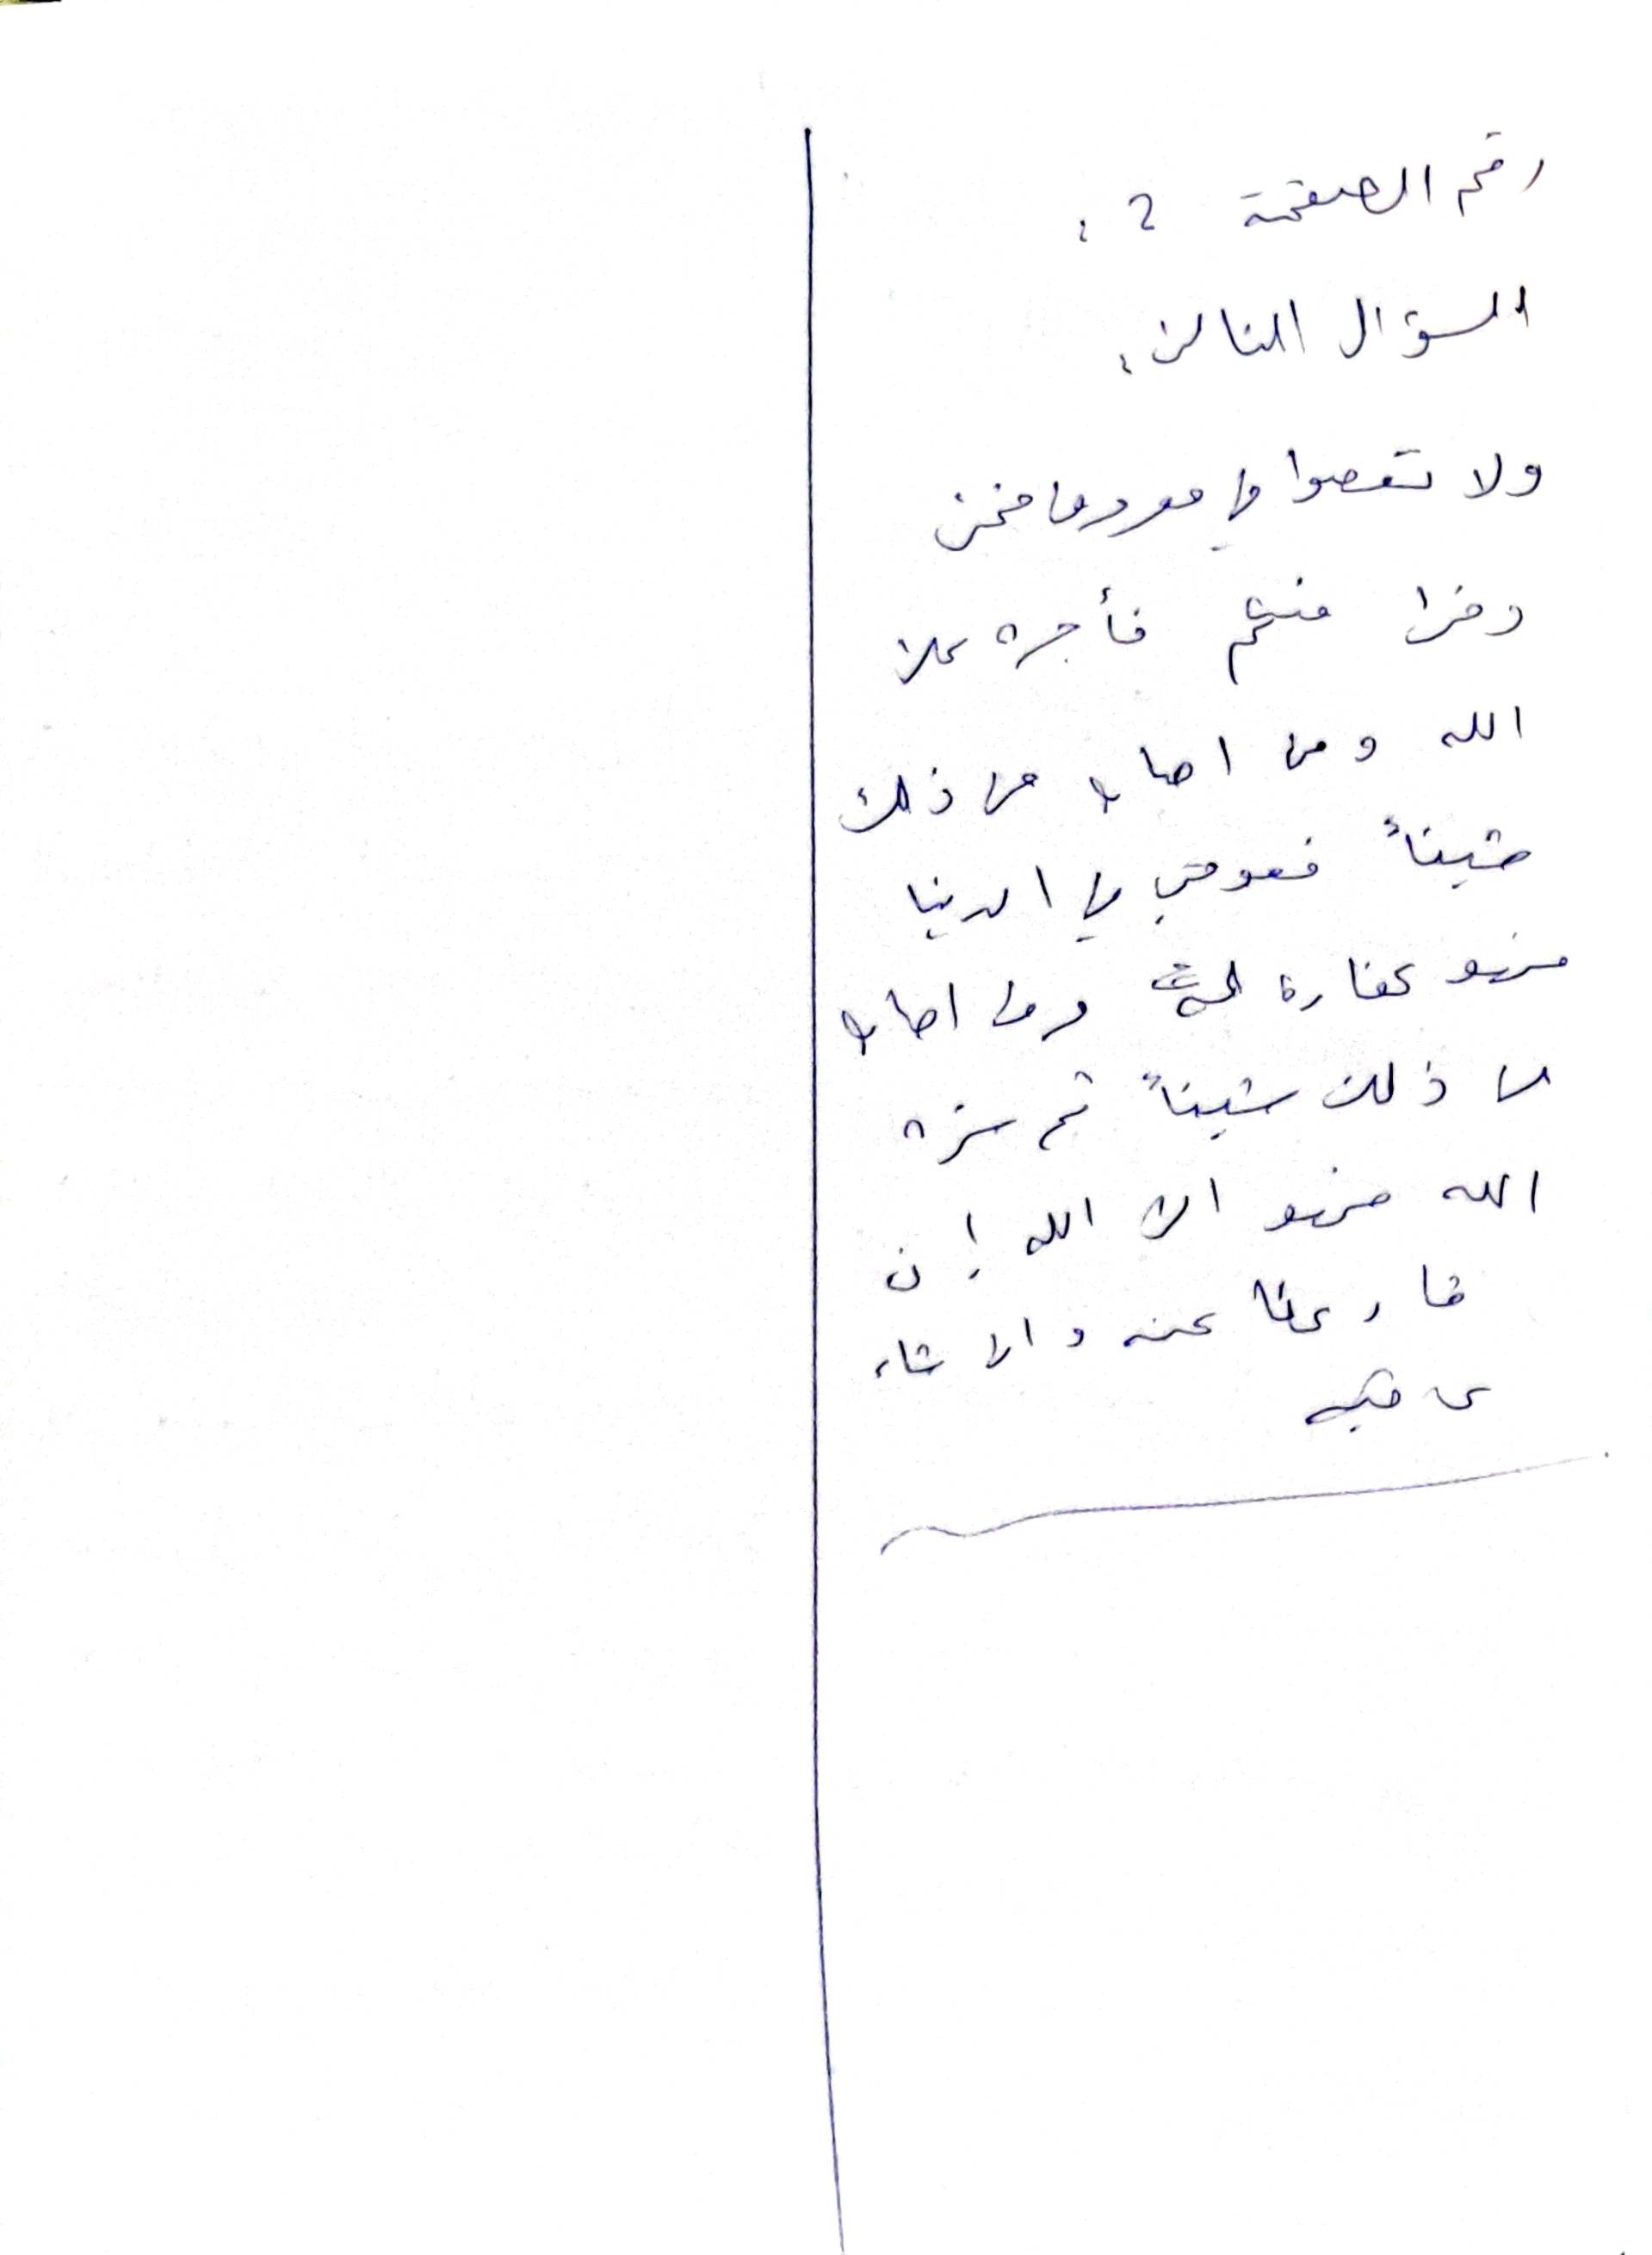 رقم الصفحة 2 :
السؤال الثالث :
ولا تعصوا في معروف فمن
وفى منكم فأجره على
الله ومن اصاب من ذلك
شيئاً فعوقب في الدنيا
فهو كفارة له ومن اصاب
من ذلك شيئاً ثم ستره
الله فهو الى الله إن
شاء عفا عنه وان شاء
عاقبه